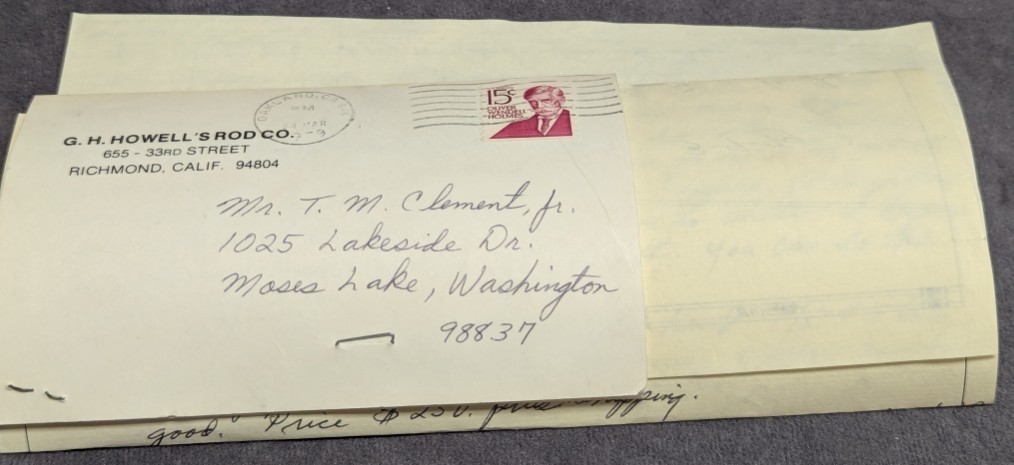 G. H. HOWELL'S ROD CO.
655 - 33RD STREET
RICHMOND, CALIF. 94804
OAKLAND, CA
PM
MAR
15c
OLIVER
WENDELL
HOLMES
Mr. T. M. Clement, Jr.
1025 Lakeside Dr.
Moses Lake, Washington
98837
good." Price $250. plus shipping.